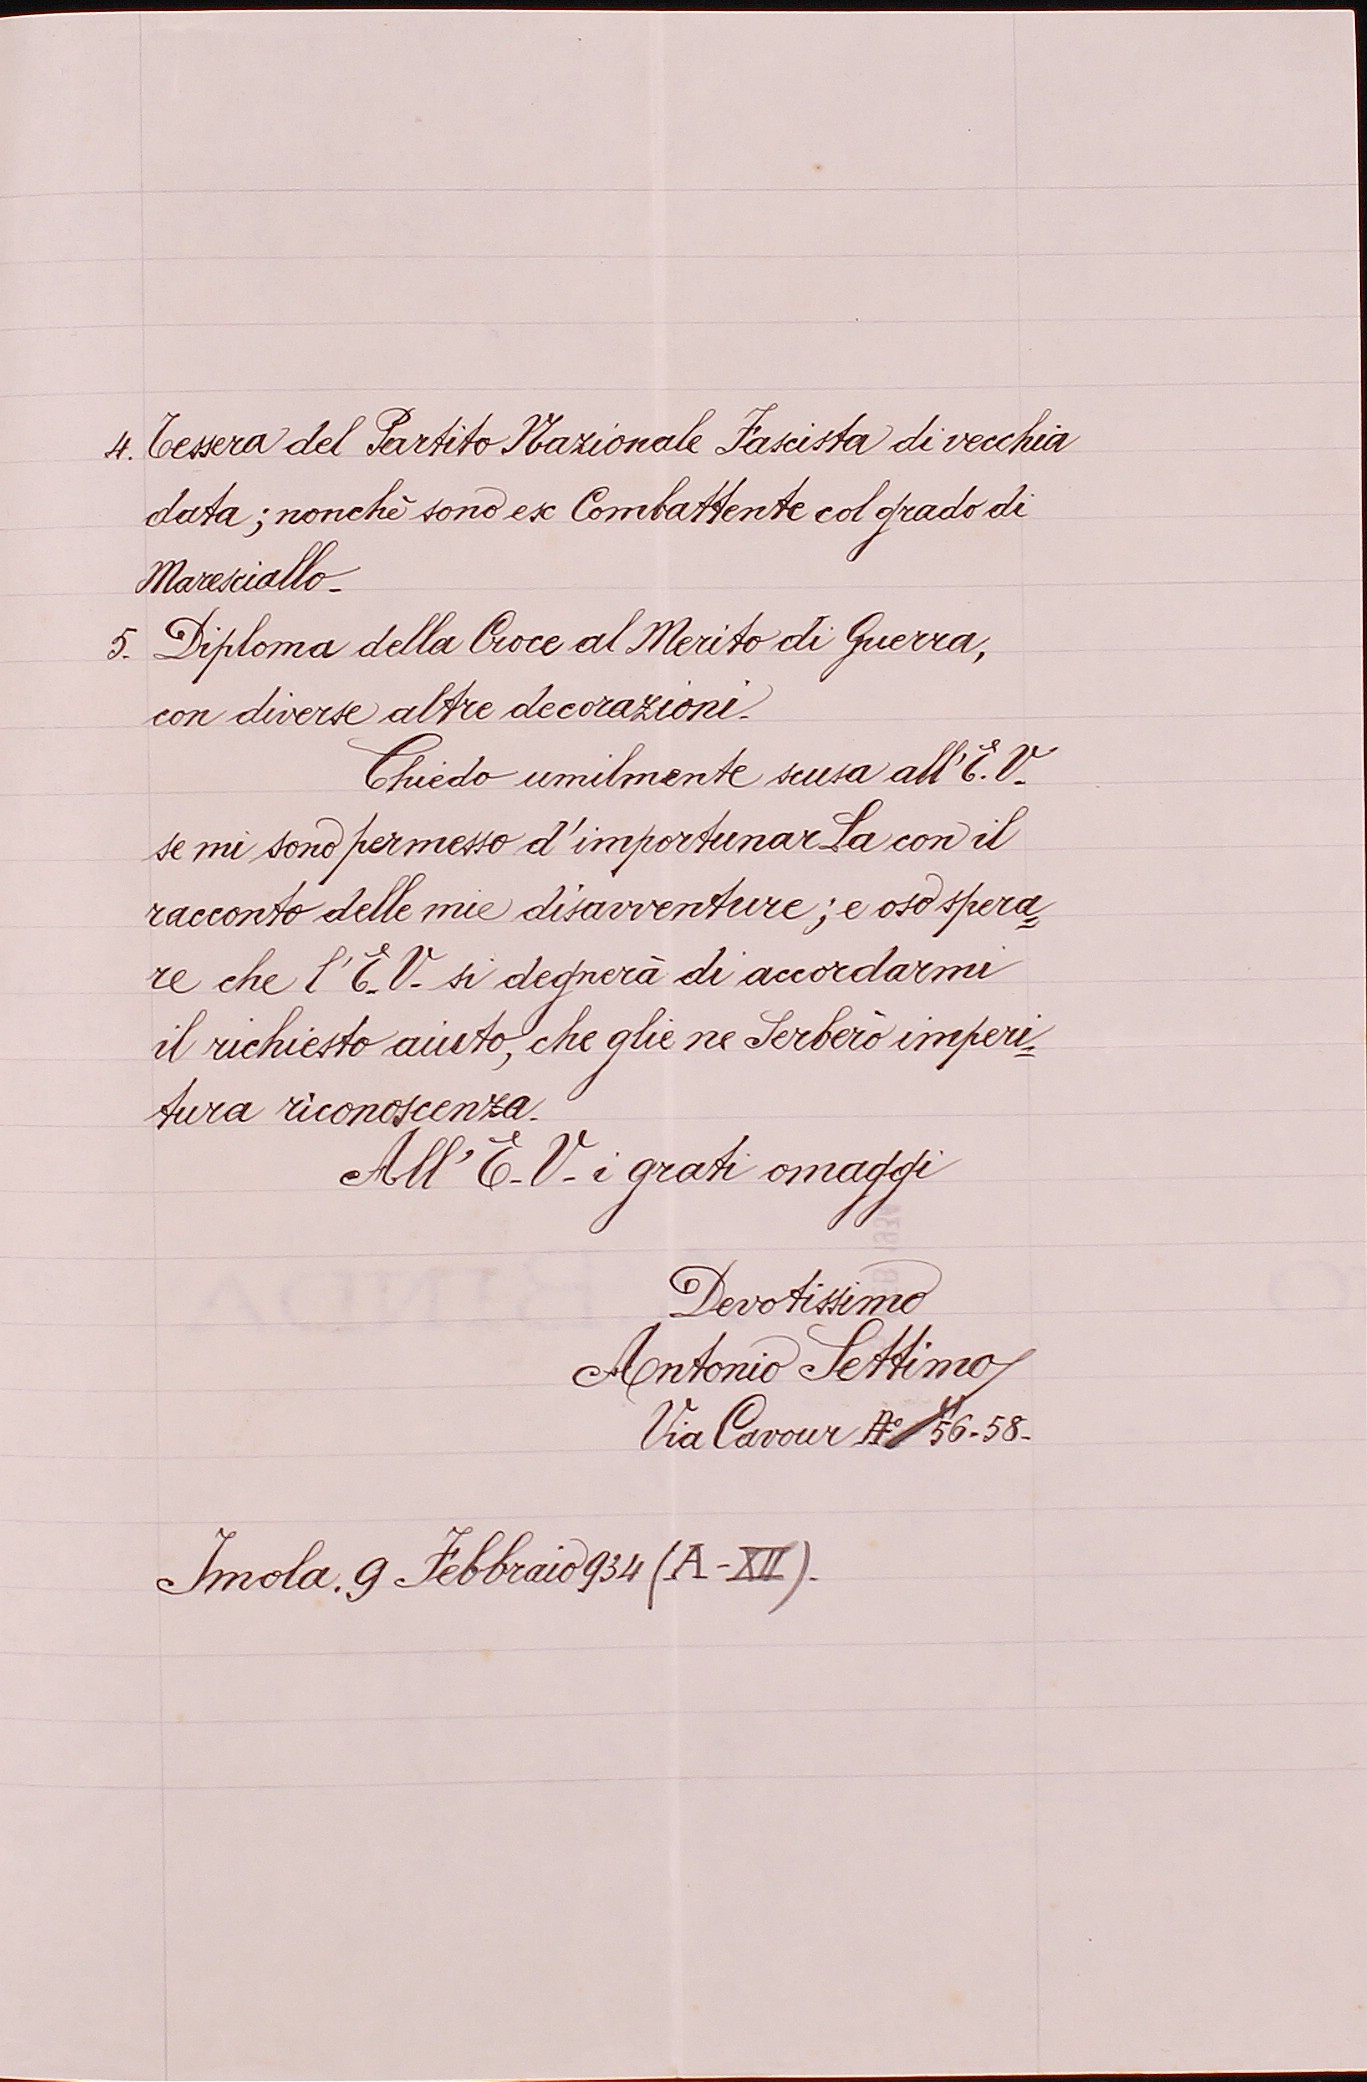 4. Tessera del Partito Nazionale Fascista di vecchia
data; nonchè sono ex Combattente col grado di
Maresciallo-
5. Diploma della Croce al Merito di Guerra,
con diverse altre decorazioni-
Chiedo umilmente scusa all'E. V.
se mi sono permesso d'importunar La con il
racconto delle mie disavventure; e oso spera=
re che l'E. V. si degnerà di accordarmi
il richiesto aiuto, che glie ne Serberò imperi=
tura riconoscenza-
All' E. V. i grati omaggi
Devotissimo
Antonio Settimo
Via Cavour 56-58-
Imola. 9 Febbraio 934 (A-XII).